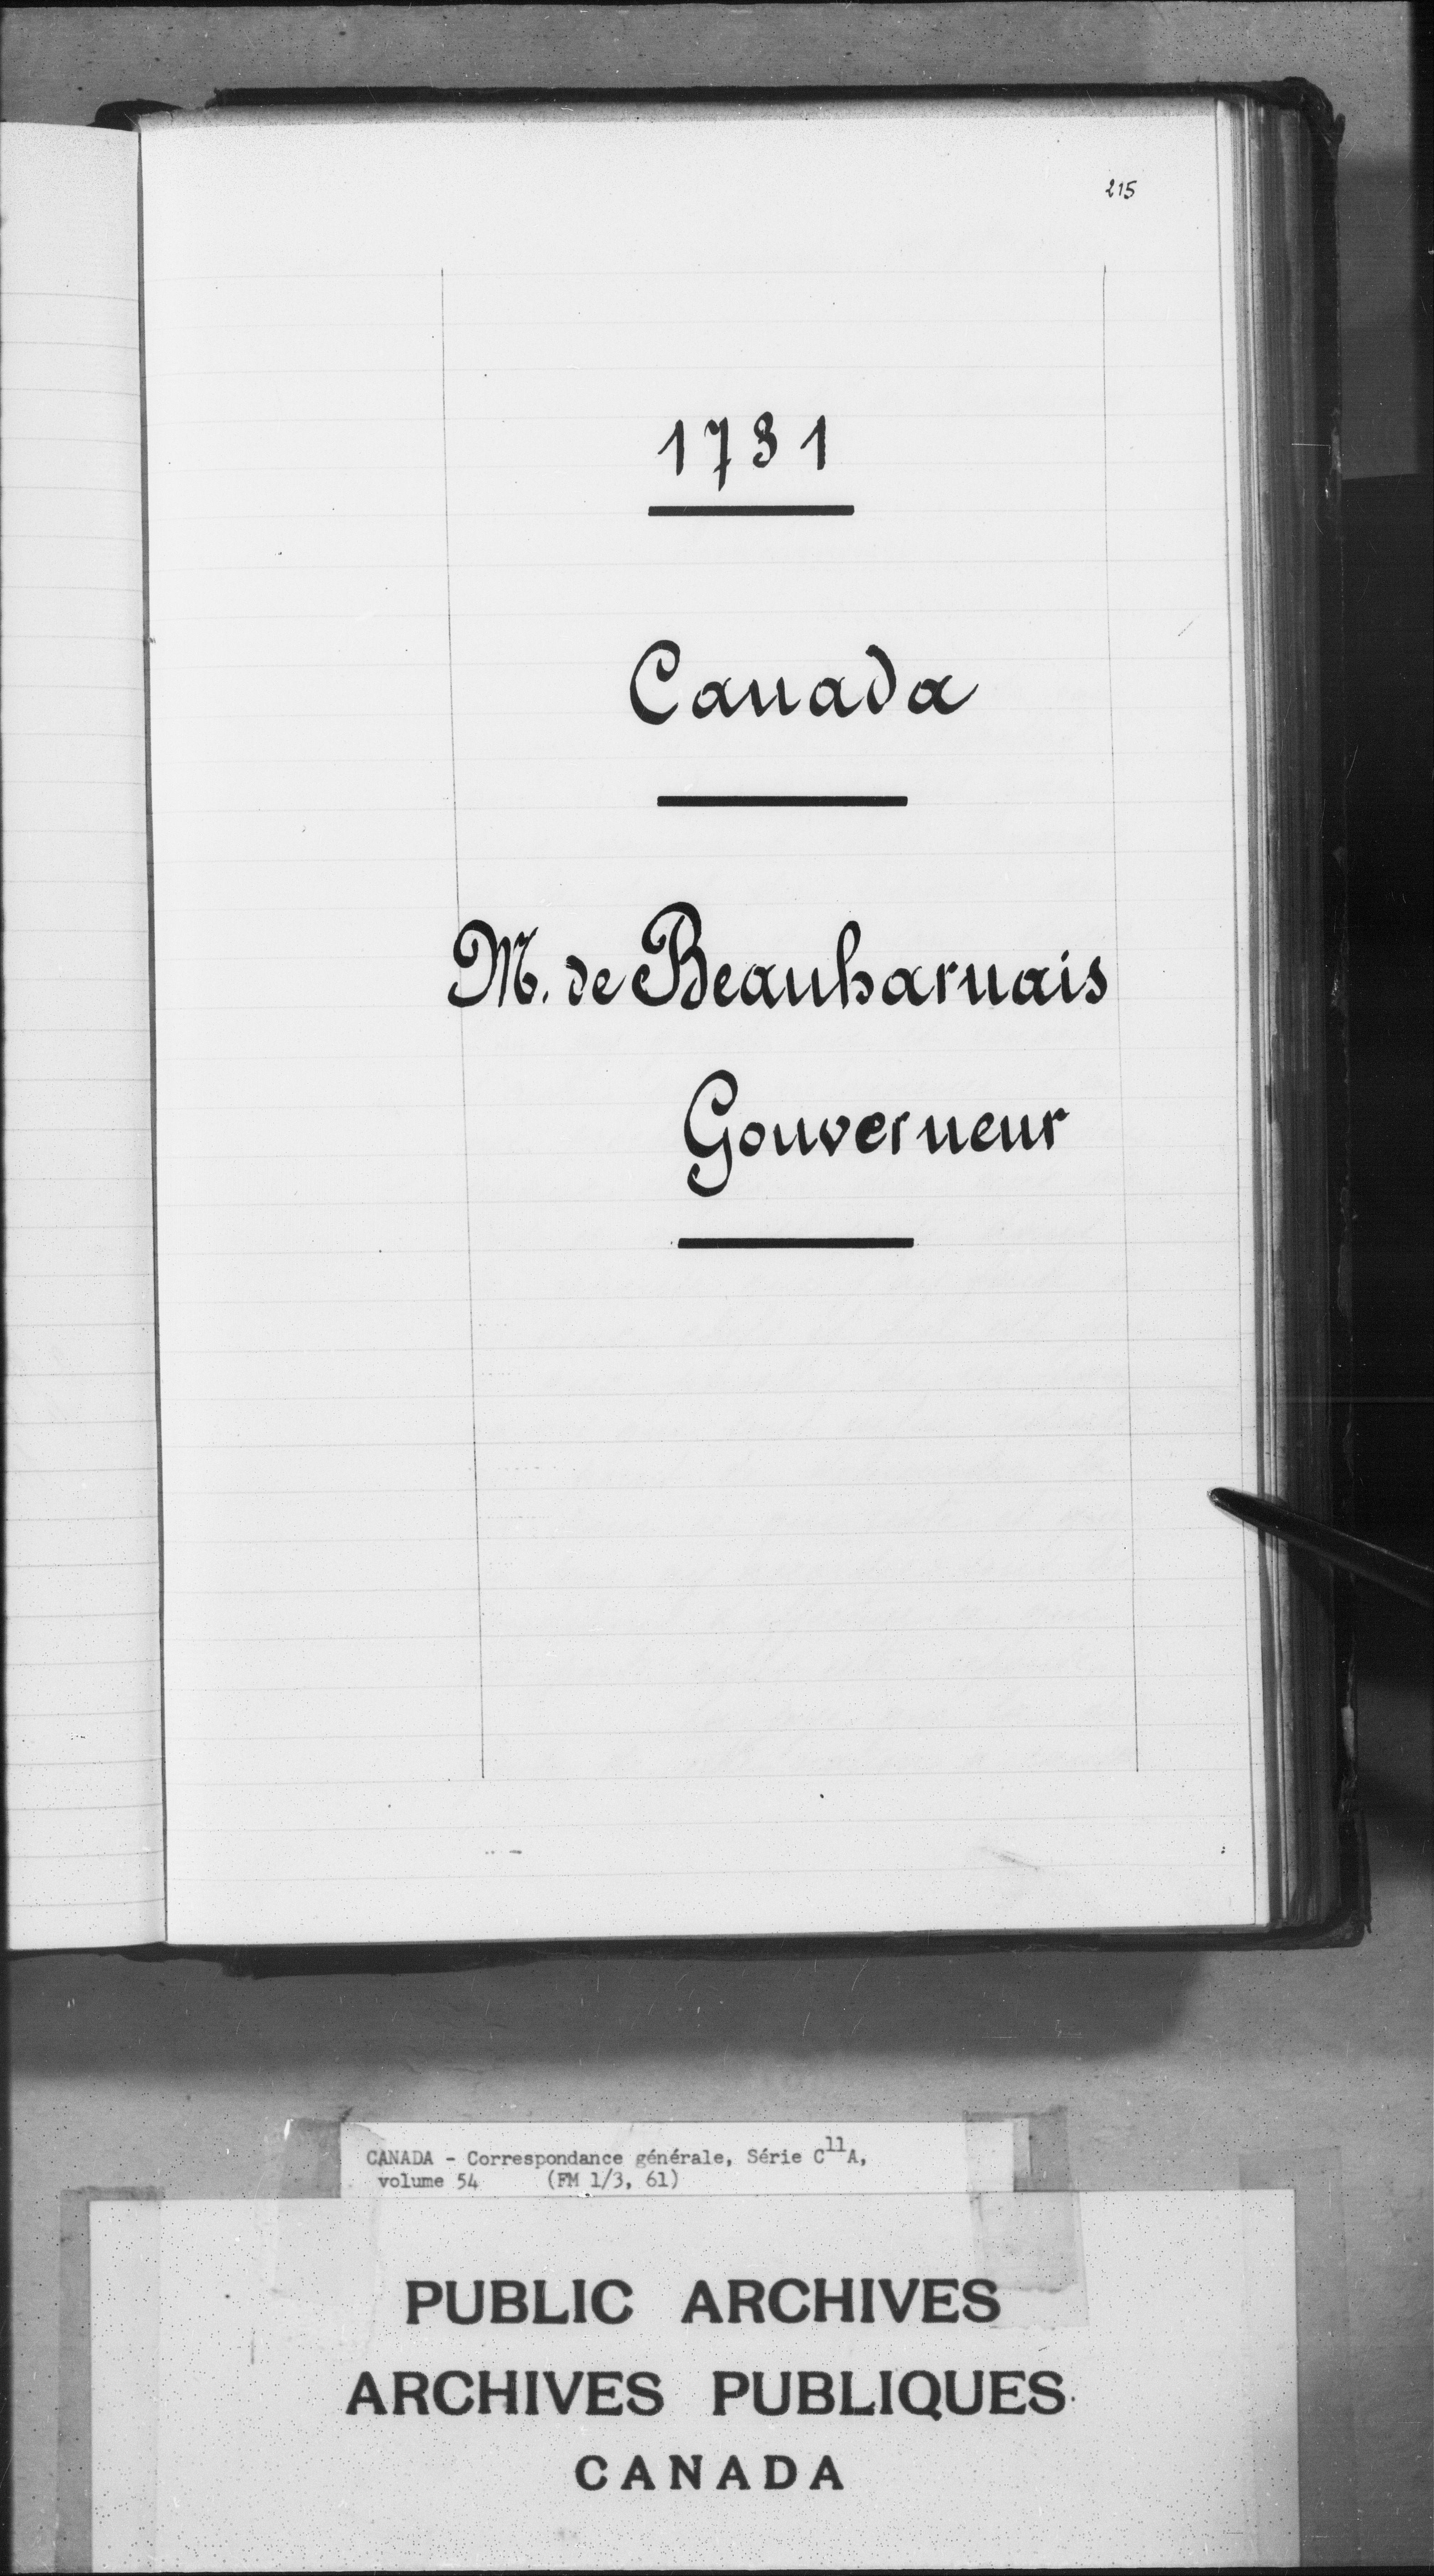 215
1731
Canada
M. de Beauharnais
Gouverneur
CANADA - Correspondance générale, Série C11A,
volume 54 (FM 1/3, 61)
PUBLIC ARCHIVES
ARCHIVES PUBLIQUES
CANADA